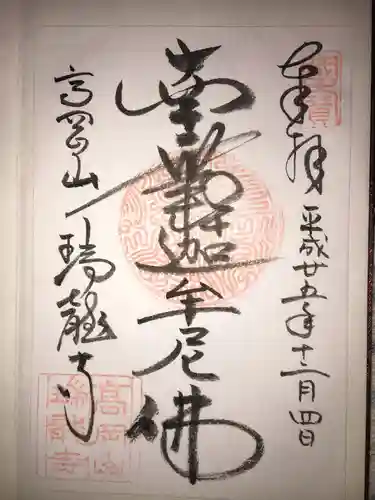 奉拝
平成廿五年十二月四日
南無釈迦牟尼佛
高岡山
瑞龍寺
國寶
高岡山
瑞龍寺